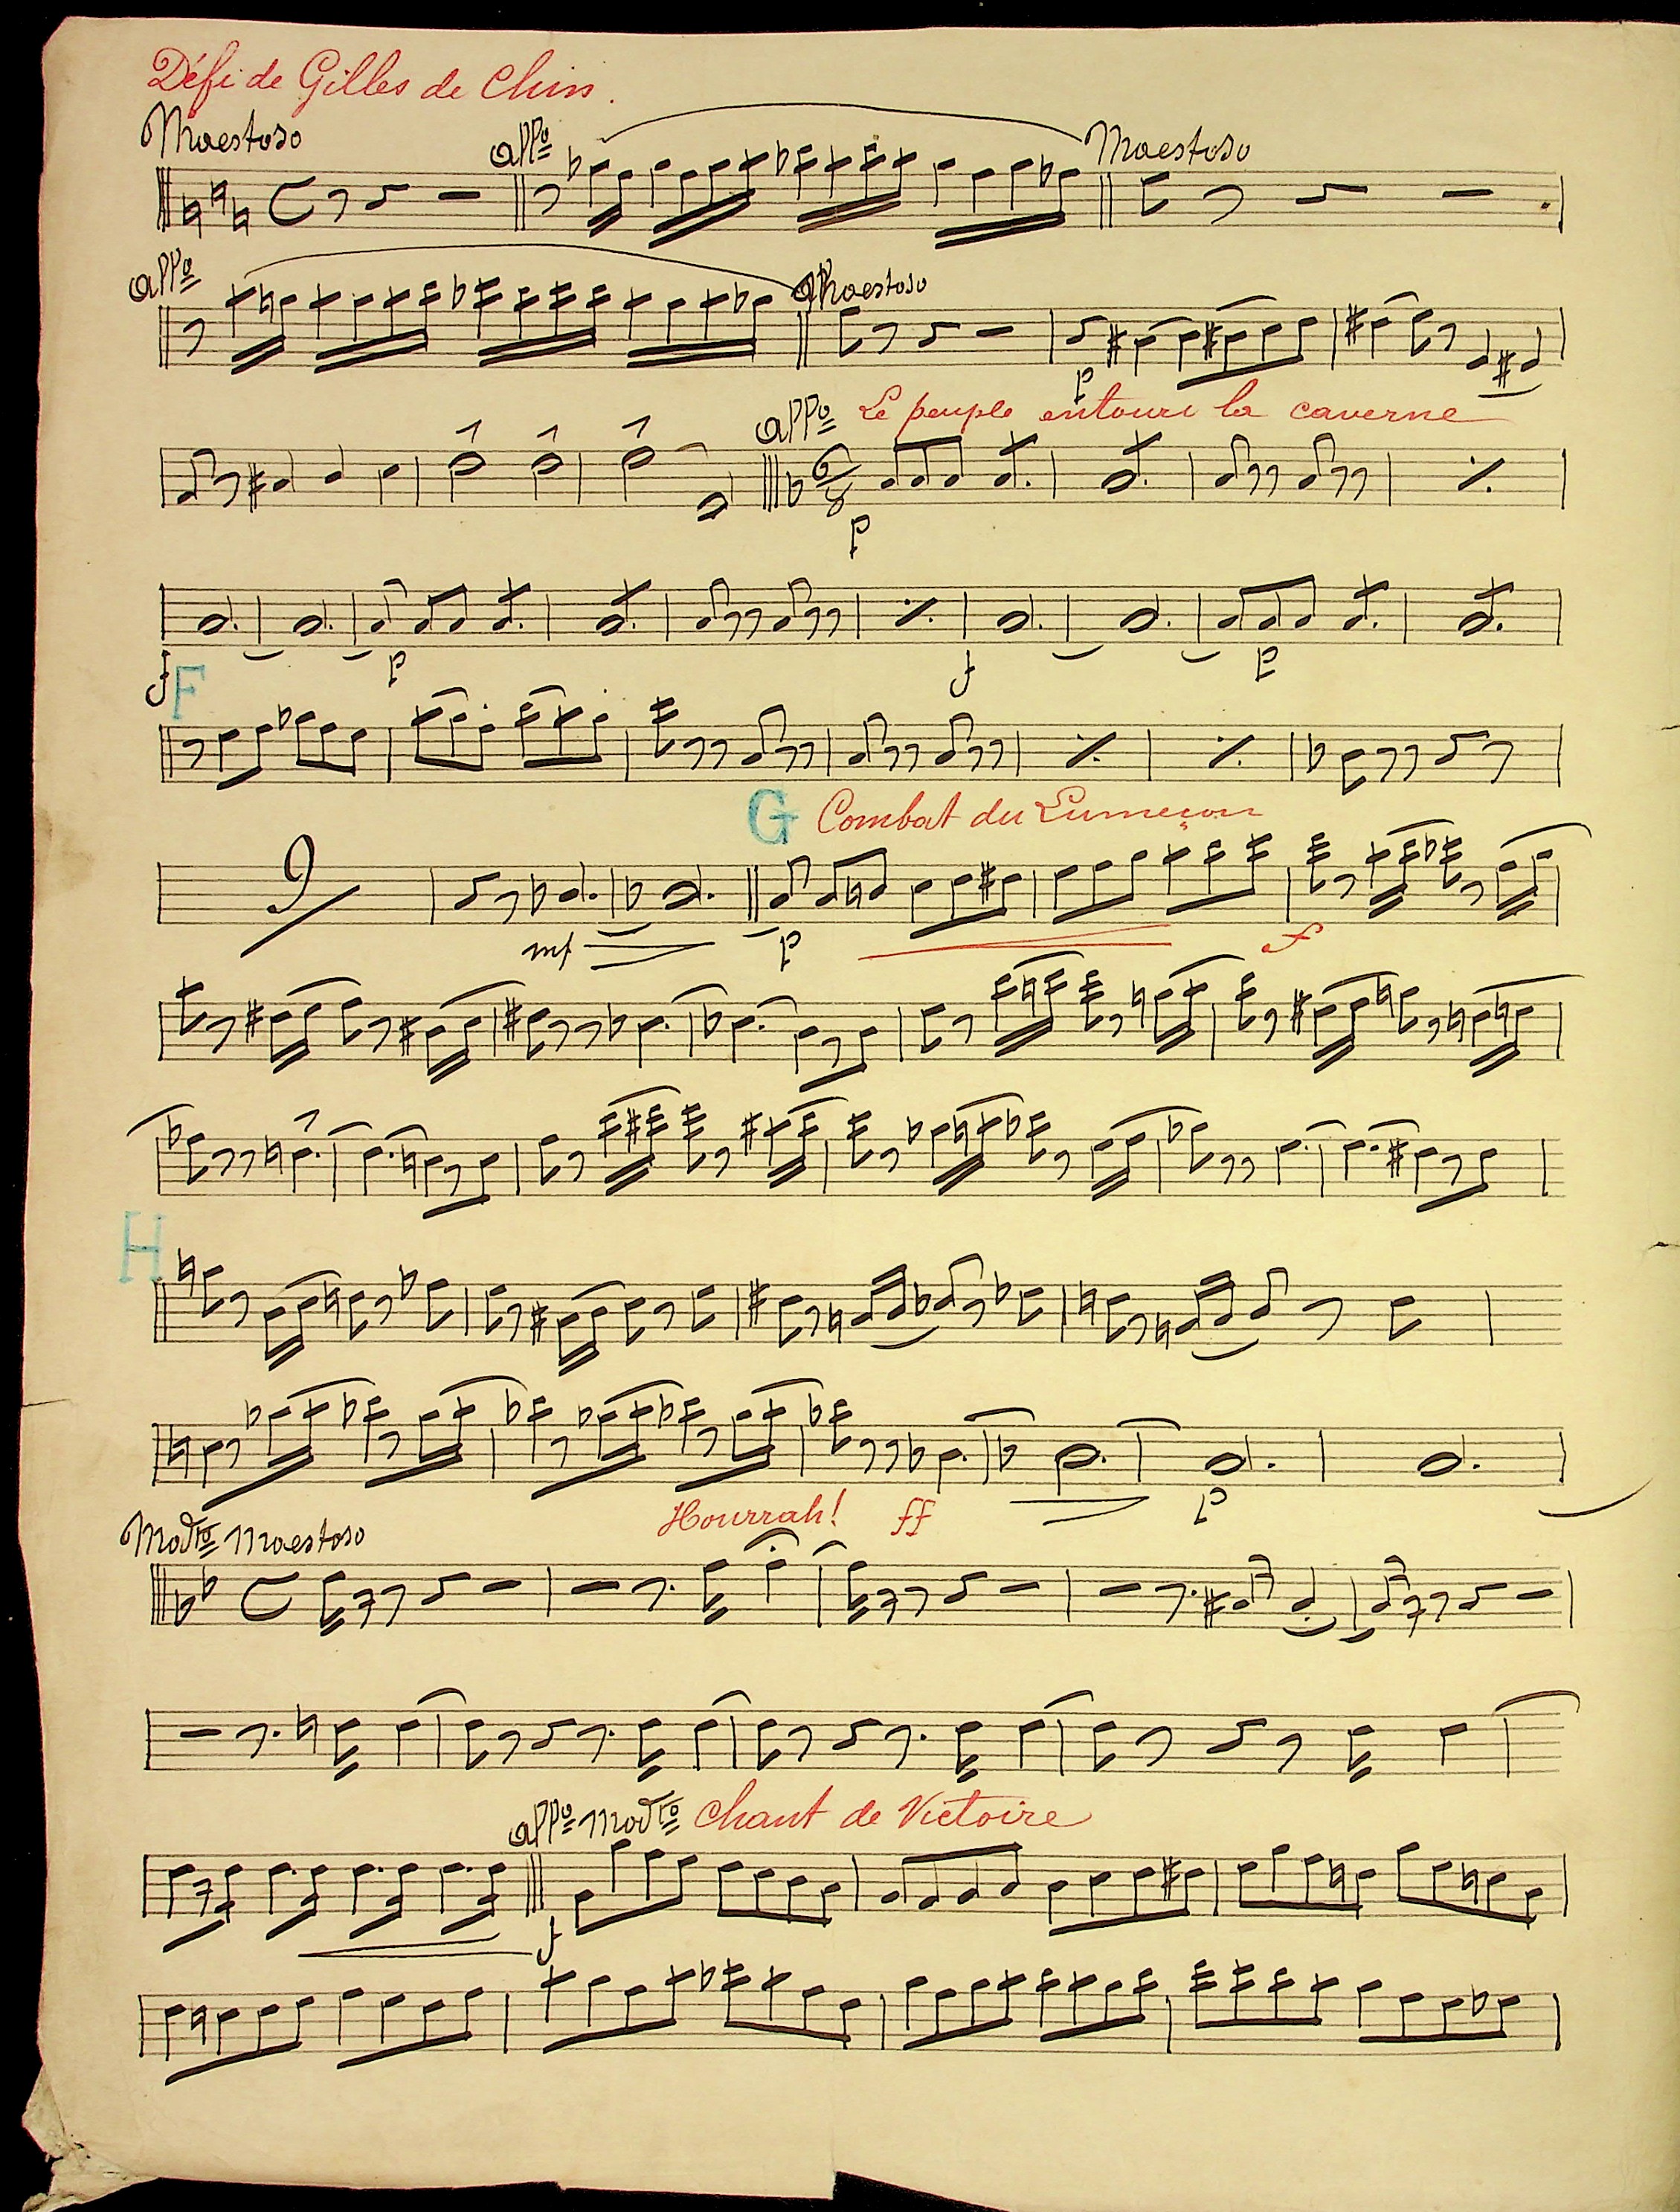 Défi de Gilles de Chin.
Maestoso allo Maestoso
allo Maestoso
p
allo Le peuple entoure la caverne
6/8
p
f p f p
F
G Combat du Lumeçon
9
mf p f
H
p
Hourrah! ff
Modto Maestoso
allo Modto Chant de Victoire
f